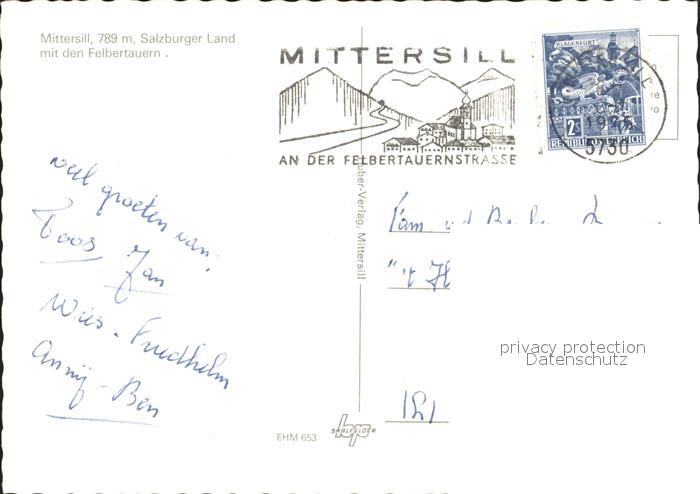 Mittersill, 789 m, Salzburger Land
mit den Felbertauern.
MITTERSILL
AN DER FELBERTAUERNSTRASSE
KLAGENFURT
2S
REPUBLIK ÖSTERREICH
5730
uber-Verlag, Mittersill
veel groeten van:
Toos Jan
Wies - Friedhelm
Annij - Ben
Fam
"'t H
privacy protection
Datenschutz
EHM 653
SAALFELDEN